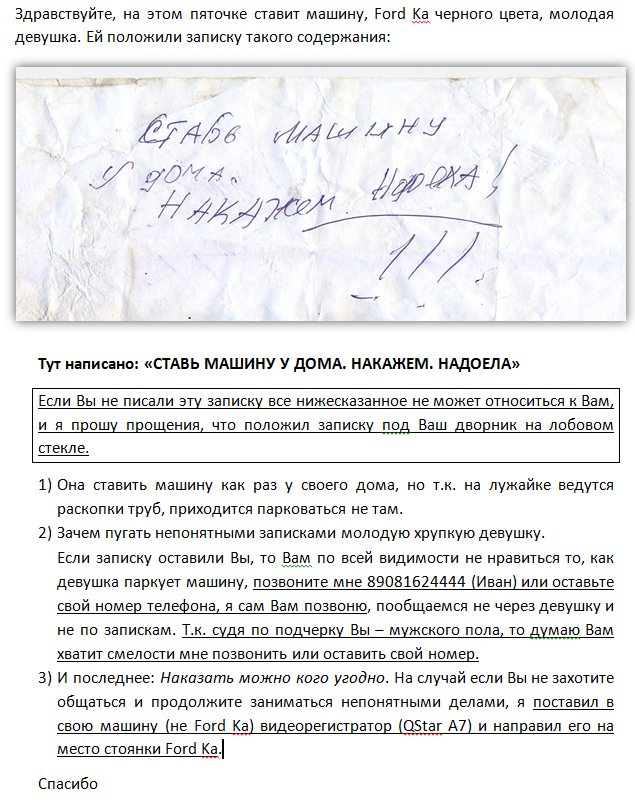 Здравствуйте, на этом пяточке ставит машину, Ford Ka черного цвета, молодая
девушка. Ей положили записку такого содержания:
СТАВЬ МАШИНУ
У ДОМА.
НАКАЖЕМ. НАДОЕЛА!
!!!
Тут написано: «СТАВЬ МАШИНУ У ДОМА. НАКАЖЕМ. НАДОЕЛА»
Если Вы не писали эту записку все нижесказанное не может относиться к Вам,
и я прошу прощения, что положил записку под Ваш дворник на лобовом
стекле.
1) Она ставить машину как раз у своего дома, но т.к. на лужайке ведутся
раскопки труб, приходится парковаться не там.
2) Зачем пугать непонятными записками молодую хрупкую девушку.
Если записку оставили Вы, то Вам по всей видимости не нравиться то, как
девушка паркует машину, позвоните мне 89081624444 (Иван) или оставьте
свой номер телефона, я сам Вам позвоню, пообщаемся не через девушку и
не по запискам. Т.к. судя по подчерку Вы – мужского пола, то думаю Вам
хватит смелости мне позвонить или оставить свой номер.
3) И последнее: Наказать можно кого угодно. На случай если Вы не захотите
общаться и продолжите заниматься непонятными делами, я поставил в
свою машину (не Ford Ka) видеорегистратор (QStar A7) и направил его на
место стоянки Ford Ka.
Спасибо